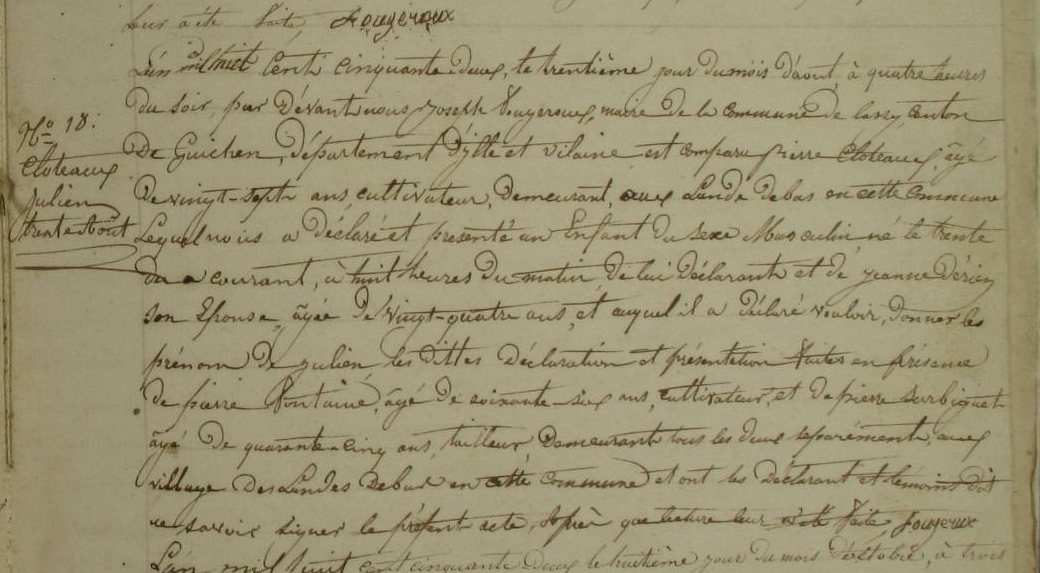 Leur a été faite, Fougeroux
N.o 18:
Cloteaux
Julien
trente Août
L'an mil huit Cent cinquante-deux, le trentième jour du mois d'aout, à quatre heures
du soir, par Dévant nous Joseph Fougeroux, maire de la commune de lassy, canton
De Guichen, Département d'ylle et vilaine est comparu pierre Cloteaux, âgé
De vingt-sept ans, cultivateur, Demeurant, aux Lande de bas en cette Commune
Lequel nous a Déclaré et presenté un Enfant du Sexe Masculin, né le trente
du courant, à huit heures du matin, de lui Déclarant et de jeanne Dérien
son Epouse, âgée De vingt-quatre ans, et auquel il a déclaré vouloir, donner les
prénom de julien, les dittes Déclaration et présentation faites en présence
De pierre Fontaine, âgé de soixante-six ans, cultivateur, et De pierre
âgé De quarante-cinq ans, tailleur Demeurant tous les deux séparément, aux
village Des Landes De bas en cette commune et ont les Déclarant et témoins Dit
ne savoir signer le présent acte, Après que lecture leur a été faite, Fougeroux
L'an mil huit cent cinquante deux le huitième jour du mois d'octobre, à trois